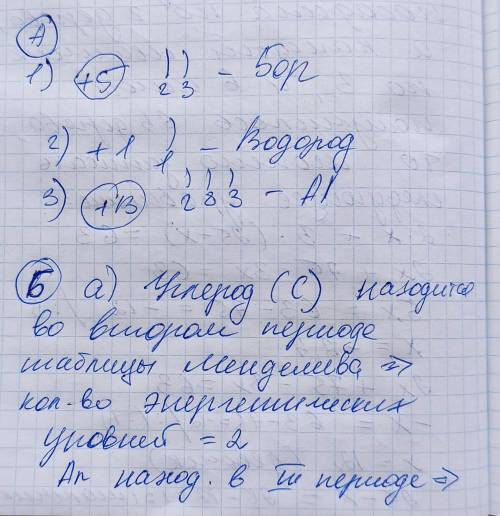 А
1) +5 ) ) - Бор
2 3
2) +1 ) - Водород
1
3) +13 ) ) ) - Al
2 8 3
Б а) Углерод (С) находится
во втором периоде
таблицы Менделева =>
кол-во энергетических
уровней = 2
Ал наход. в III периоде =>